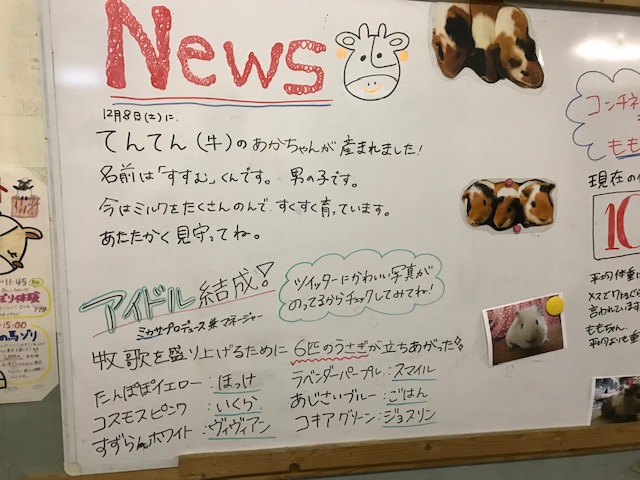 News
12月8日(土)に、
てんてん(牛)のあかちゃんが産まれました!
名前は「すすむ」くんです。 男の子です。
今はミルクをたくさんのんで、すくすく育っています。
あたたかく見守ってね。
アイドル結成!
ミカサプロデュース兼マネージャー
ツイッターにかわいい写真が
のってるからチェックしてみてね!
牧歌を盛り上げるために 6匹のうさぎが立ちあがった!!
たんぽぽイエロー:ほっけ
コスモスピンク:いくら
すずらんホワイト:ヴィヴィアン
ラベンダーパープル:スマイル
あじさいブルー:ごはん
コキアグリーン:ジョスリン
コンチネ
もも
現在の
10
平均体重
言われています
ももちゃん
11:45
体験
15:00
の馬ゾリ